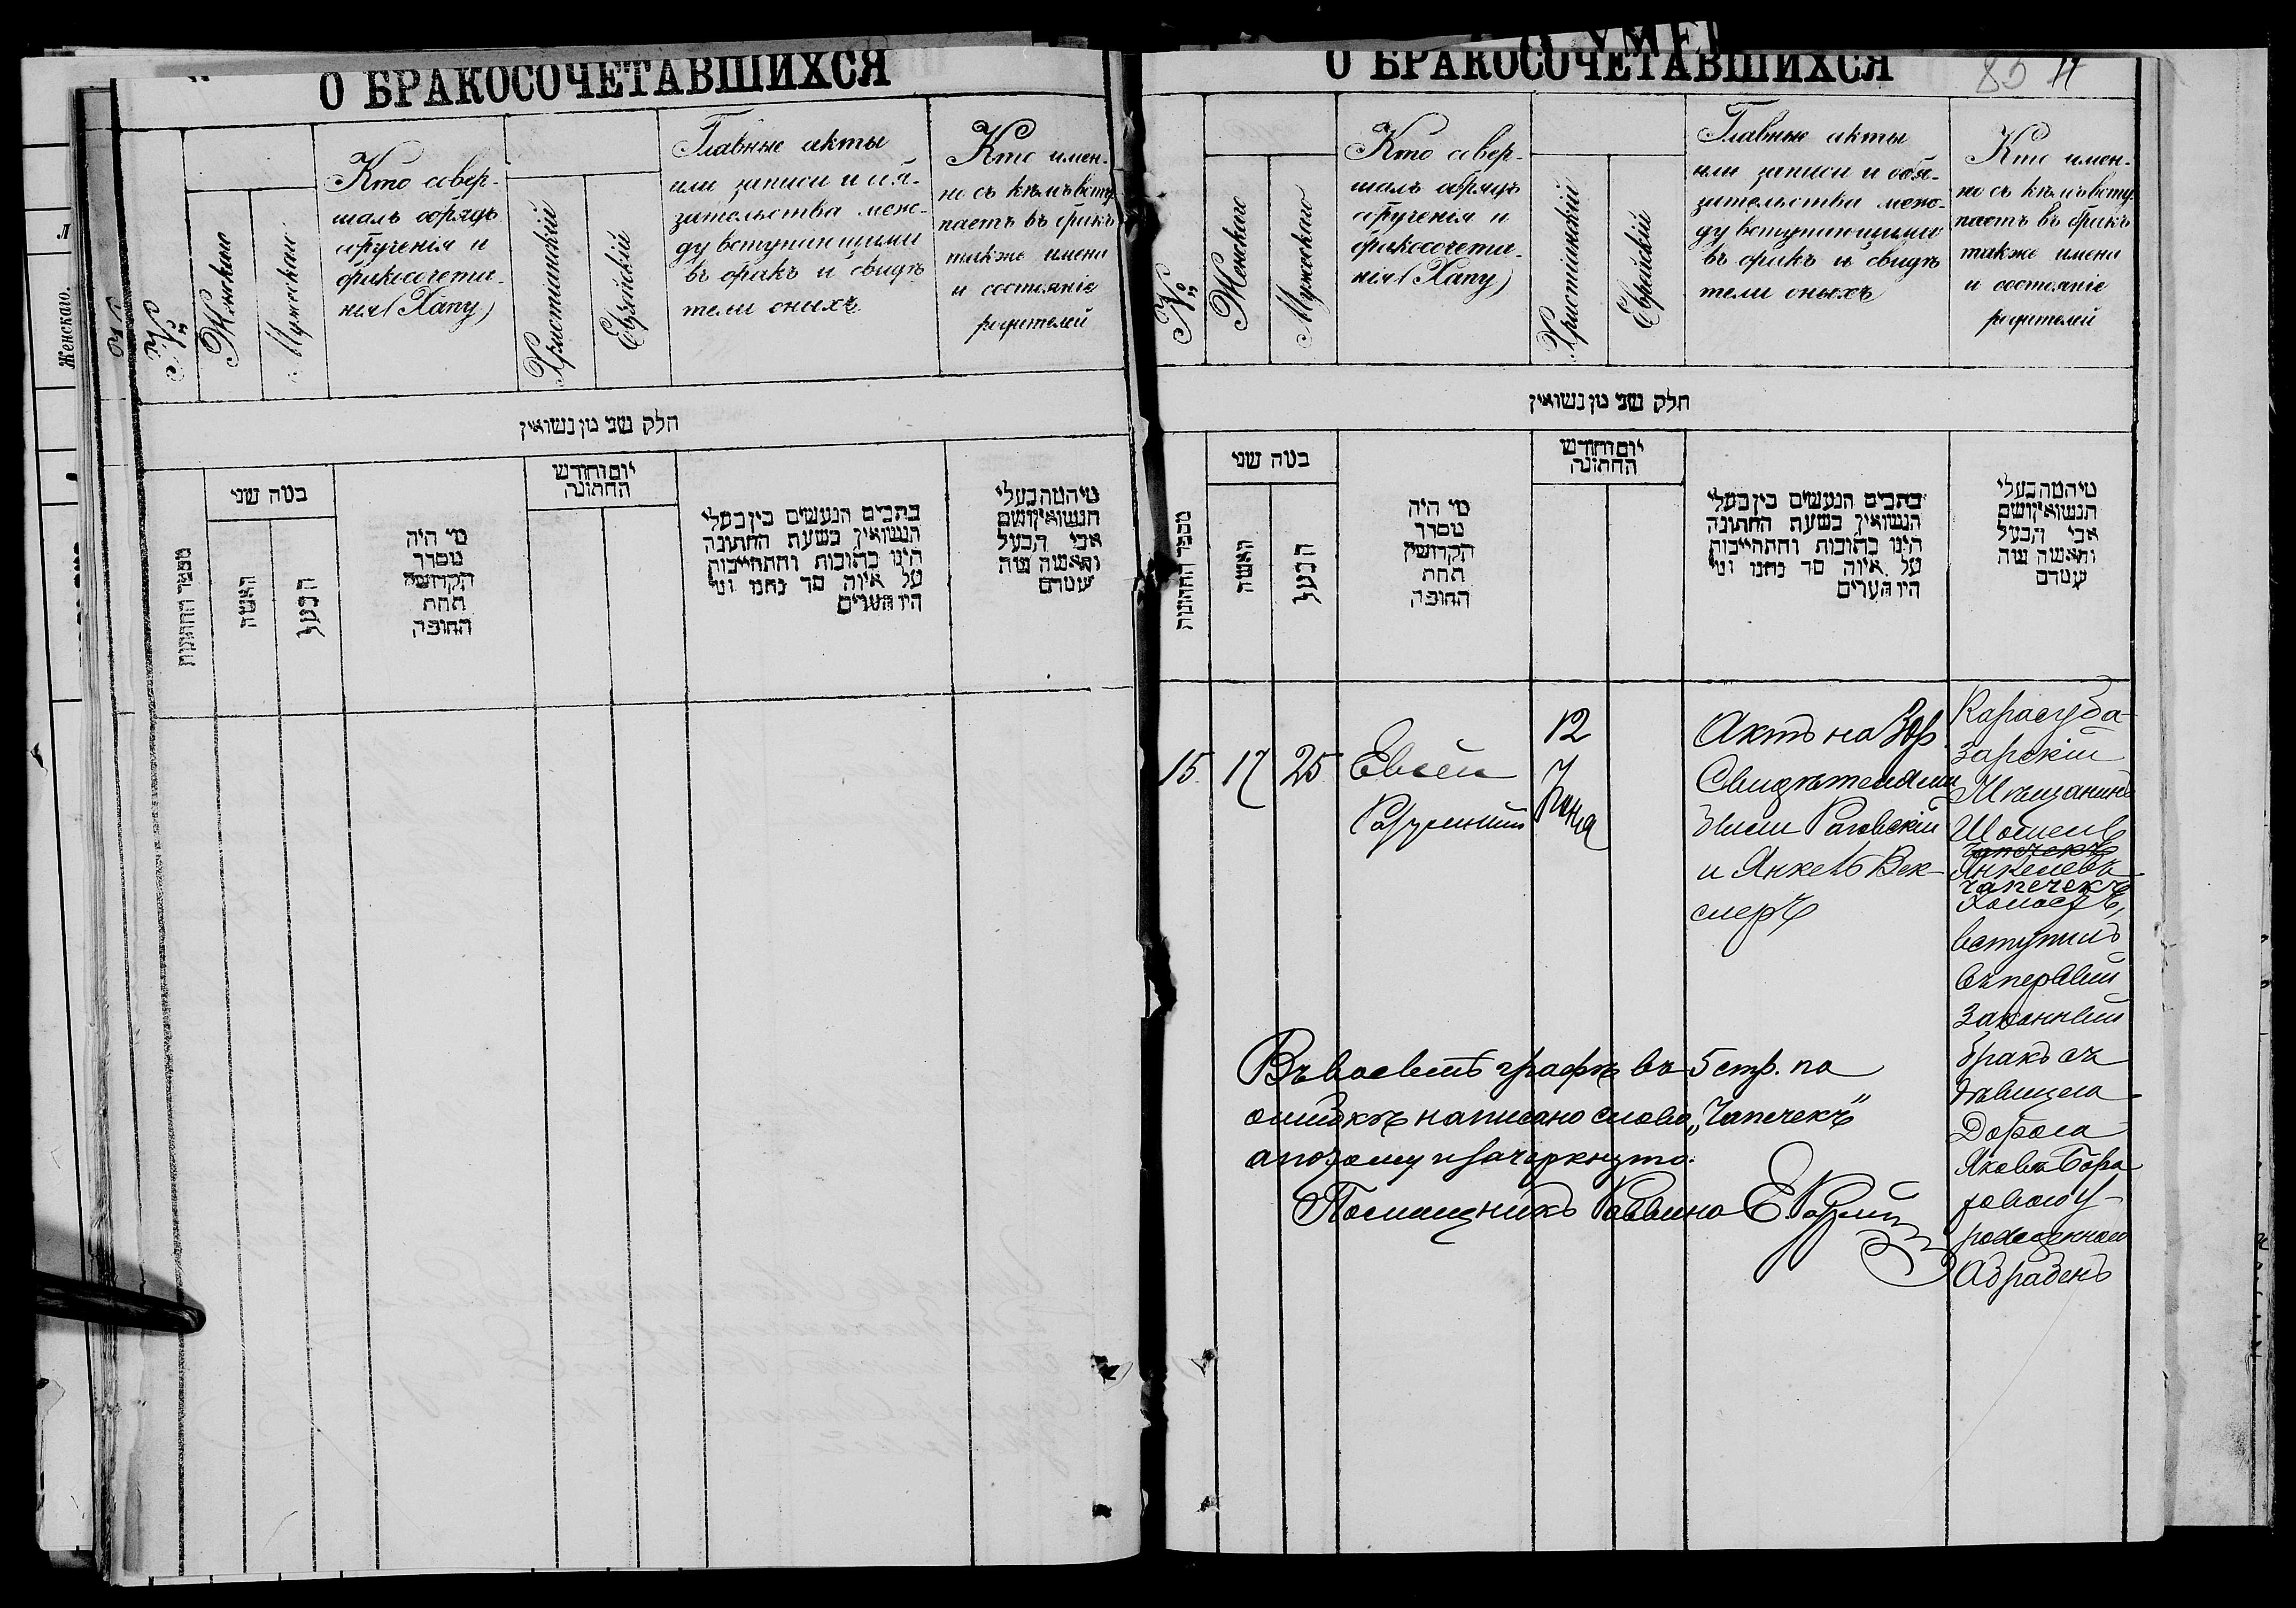 О БРАКОСОЧЕТАВШИХСЯ
№
Женскаго
Мужескаго
Кто совер-
шалъ обрядъ
обрученія и
бракосочета-
нія (Хапу)
Христіанскій
Еврейскій
Главные акты
или записи и обя-
зательства меж-
ду вступающими
въ бракъ и свидѣ
тели оныхъ
Кто имен-
но съ кѣмъ всту-
паетъ въ бракъ
также имена
и состояніе
родителей
חלק שני מן נשואין
מספר החתונות
כמה שני
האשה
הבעל
מי היה
מסדר
הקדושין
תחת
החופה
יום וחודש
החתונה
כתבים הנעשים בין בעלי
הנשואין בשעת החתונה
היינו כתובות והתחייבות
על איזה סך נתנו ומי
היו העדים
מי המה בעלי
הנשואין ושם
אבי הבעל
והאשה ומה
Женскаго.
О БРАКОСОЧЕТАВШИХСЯ
85
№
Женскаго
Мужескаго
Кто совер-
шалъ обрядъ
обрученія и
бракосочета-
нія (Хапу)
Христіанскій
Еврейскій
Главные акты
или записи и обя-
зательства меж-
ду вступающими
въ бракъ и свидѣ
тели оныхъ
Кто имен-
но съ кѣмъ всту-
паетъ въ бракъ
также имена
и состояніе
родителей
חלק שני מן נשואין
מספר החתונות
כמה שני
האשה
הבעל
מי היה
מסדר
הקדושין
תחת
החופה
יום וחודש
החתונה
כתבים הנעשים בין בעלי
הנשואין בשעת החתונה
היינו כתובות והתחייבות
על איזה סך נתנו ומי
היו העדים
מי המה בעלי
הנשואין ושם
אבי הבעל
והאשה ומה
15. 17 25
Евсей
12
Іюня
Актъ на
Свидѣтелями
Раговскій
и Янкель Век-
слеръ
Карасуба-
зарскій
Мѣщанинъ
Чапечекъ
Янкелевъ
Чапечекъ
Холостъ,
вступилъ
въ первый
Законный
бракъ съ
дѣвицею
Дорога
Якова
рожденною
Въ восьмой графѣ въ 5 стр. по
ошибкѣ написано слово „Чапечекъ"
а потому и зачеркнуто.
Помощникъ Раввина Е.